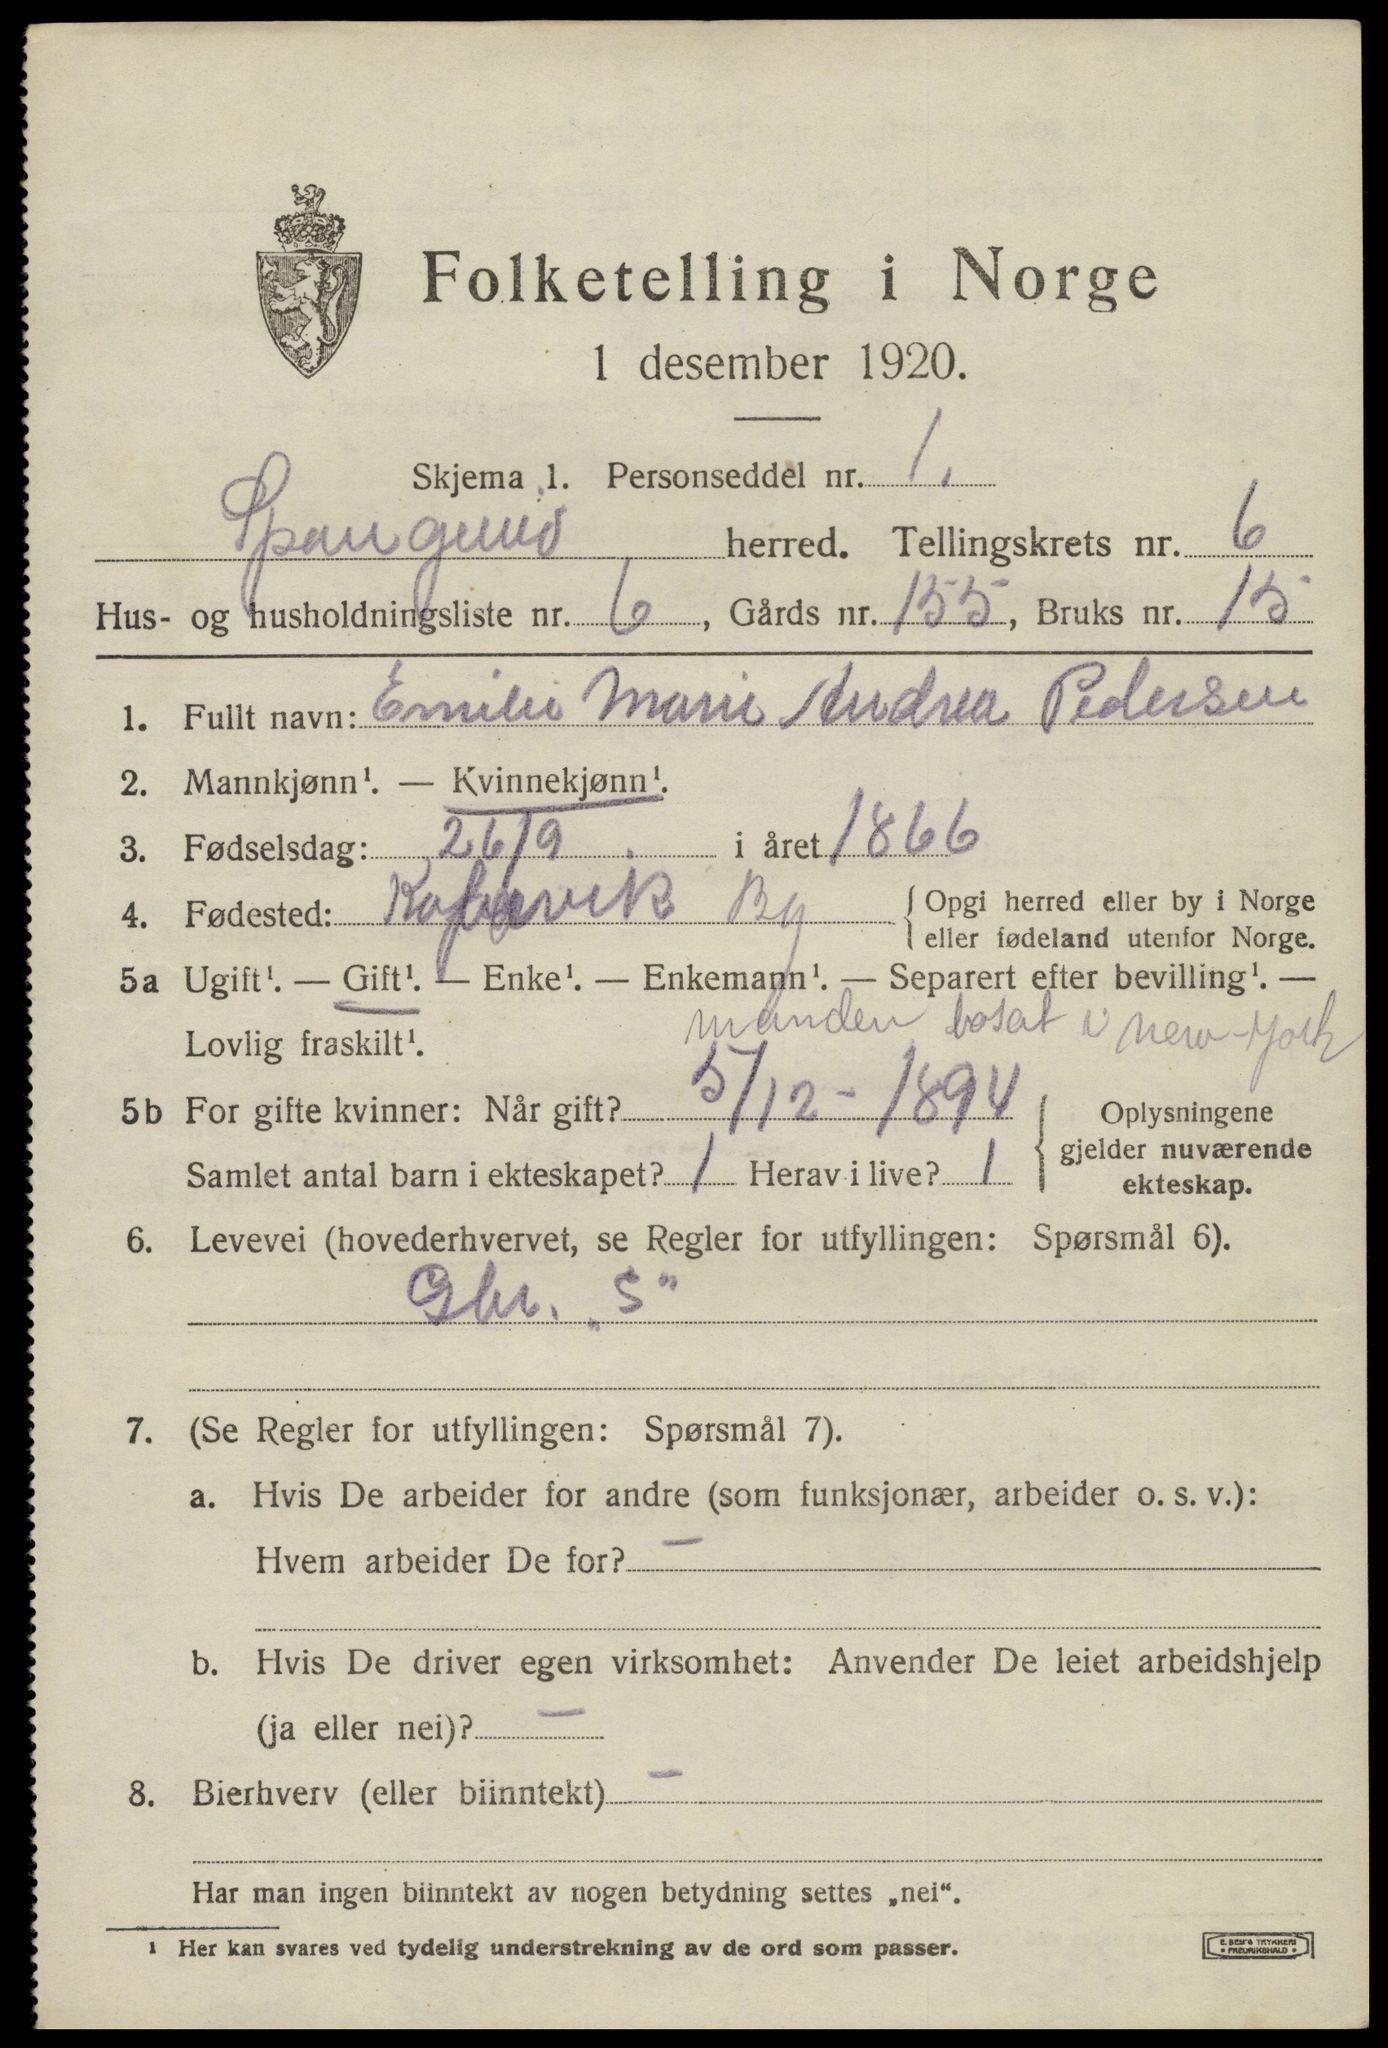 Folketelling i Norge
1 desember 1920.
Skjema 1. Personseddel nr. 1.
herred. Tellingskrets nr. 6
Hus- og husholdningsliste nr. 6, Gårds nr. 155, Bruks nr. 15
1. Fullt navn: Emilie Marie Andrea Pedersen
2. Mannkjønn¹. — Kvinnekjønn¹.
3. Fødselsdag: 26/9. i året 1866
4. Fødested: By { Opgi herred eller by i Norge
eller fødeland utenfor Norge.
5a Ugift¹. — Gift¹. — Enke¹. — Enkemann¹. — Separert efter bevilling¹. —
Lovlig fraskilt¹. manden bosat i New-York
5b For gifte kvinner: Når gift? 5/12 - 1894
Samlet antal barn i ekteskapet? 1 Herav i live? 1
Oplysningene
gjelder nuværende
ekteskap.
6. Levevei (hovederhvervet, se Regler for utfyllingen: Spørsmål 6).
Gbr. „S"
7. (Se Regler for utfyllingen: Spørsmål 7).
a. Hvis De arbeider for andre (som funksjonær, arbeider o. s. v.):
Hvem arbeider De for? —
b. Hvis De driver egen virksomhet: Anvender De leiet arbeidshjelp
(ja eller nei)? —
8. Bierhverv (eller biinntekt) —
Har man ingen biinntekt av nogen betydning settes „nei“.
¹ Her kan svares ved tydelig understrekning av de ord som passer.
E. SEM'S TRYKKERI
• FREDRIKSHALD •